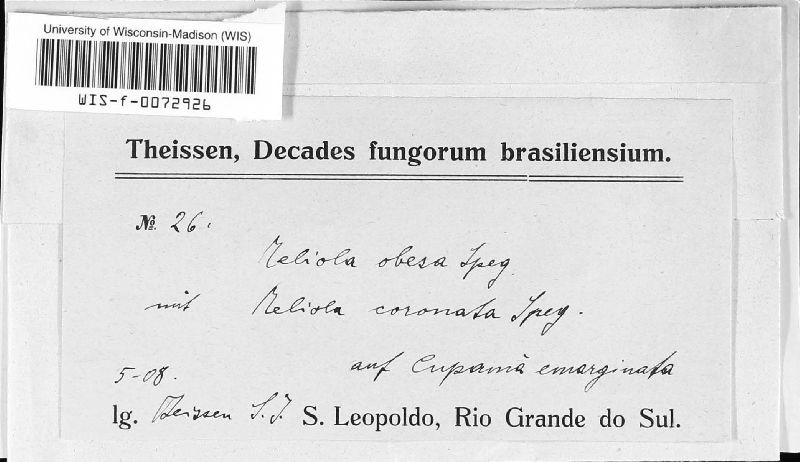 University of Wisconsin-Madison (WIS)
WIS-f-0072926
Theissen, Decades fungorum brasiliensium.
№. 26.
Meliola obesa Speg.
mit Meliola coronata Speg.
auf Cupania emarginata
5-08.
lg. Theissen S.J. S. Leopoldo, Rio Grande do Sul.